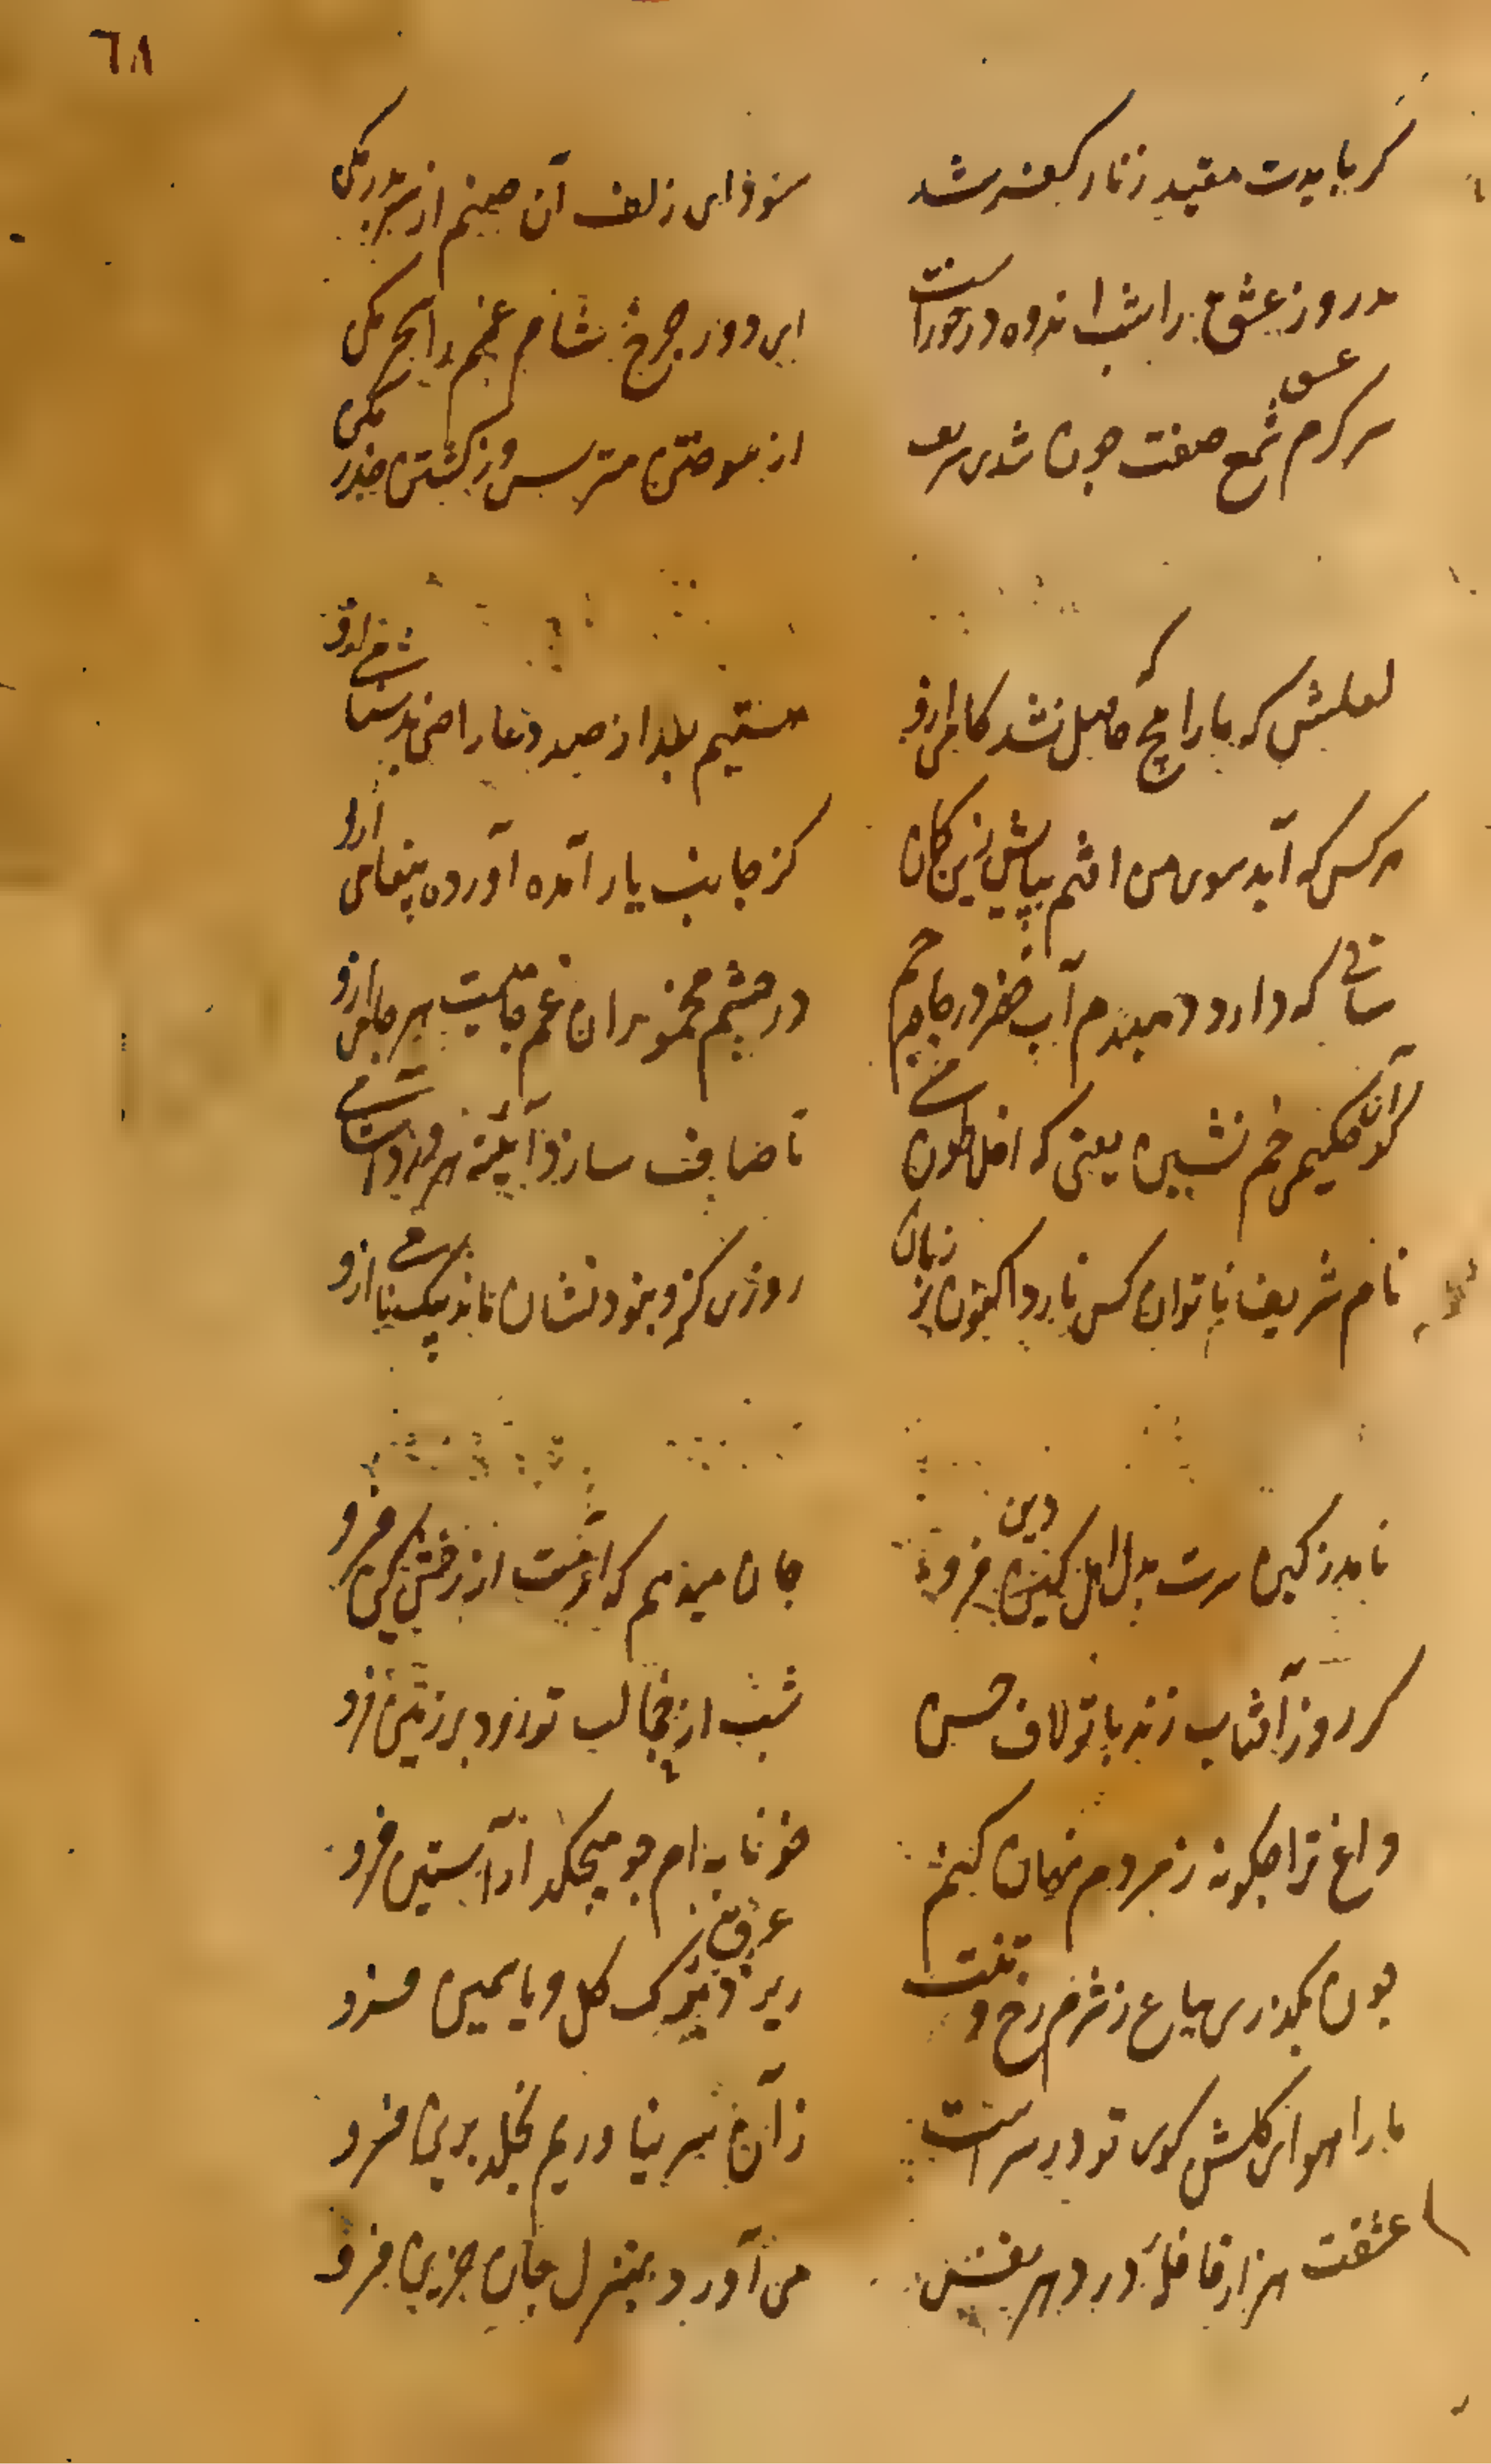 ٦٨
گر بایدت مقید زنار کفر شد
سودای زلف آن صنم از سر بدر مکن
در روز عشق را شب اندوه در خوراست
ای دور چرخ شام غم را سحر مکن
سرگرم عشق شمع صفت چون شدی شریف
از سوختن مترس وز کشتن حذر مکن
لعلش که ما را هیچ حاصل نشد کامی ارو
هستیم بعد از صد دعا راضی بدشنامی ازو
هر کس که آید سوی من افتم بپایش زین گمان
کز جانب یار آمده آورده پیغامی ازو
ساقی که دارد دمبدم آب خضر در جام جم
در چشم مخموران غم جامیست هر جامی ازو
کو آن حکیم خم نشین یعنی که افلاطون می
تا صاف سازد آینه هر درد آشامی
نام شریف ناتوان کس نارد اکنون بر زبان
روزی کزو بخود نشان ماند بدنامی ازو
نامد ز کین سرت بدل اهل دین فرو
جان میدهم که آمدت از رخش کین فرو
گر روز آفتاب زند با تو لاف حسن
شب از خجالت تو رود بر زمین فرو
داغ ترا چگونه ز مردم نهان کنم
خونابه ام چو میچکد از آستین فرو
چون بگذری بباغ ز شرم رخ و تنت
ریزد عرق ز برگ گل و یاسمین فرو
ما را هوای گلشن کوی تو در سر است
زآن سر نیاوریم بخلد برین فرو
عشقت هزار قافلهٔ درد هر نفس
می آورد بمنزل جان حزین فرو